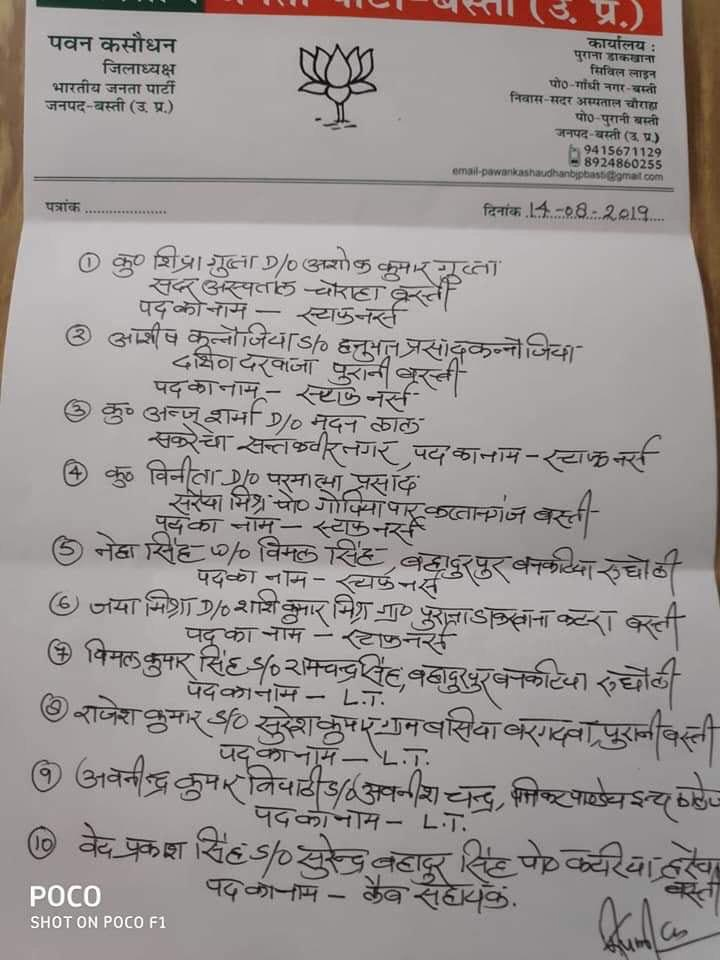 जनता पार्टी-बस्ती (उ. प्र.)
पवन कसौधन
जिलाध्यक्ष
भारतीय जनता पार्टी
जनपद-बस्ती (उ. प्र.)
कार्यालय :
पुराना डाकखाना
सिविल लाइन
पो०-गाँधी नगर-बस्ती
निवास-सदर अस्पताल चौराहा
पो०-पुरानी बस्ती
जनपद-बस्ती (उ. प्र.)
9415671129
8924860255
email-pawankashaudhanbjpbasti@gmail.com
पत्रांक ....................
दिनांक 14-08-2019
① कु० शिप्रा गुप्ता D/o अशोक कुमार गुप्ता
सदर अस्पताल चौराहा बस्ती
पद का नाम — स्टाफ नर्स
② आशीष कन्नौजिया S/o हनुमत प्रसाद कन्नौजिया
दक्षिण दरवाजा पुरानी बस्ती
पद का नाम - स्टाफ नर्स
③ कु० अन्जू शर्मा D/o मदन लाल
सकरेचा सन्तकबीर नगर, पद का नाम - स्टाफ नर्स
④ कु० विनीता D/o परमात्मा प्रसाद
सरैया मिश्र पो० गोपियापार कप्तानगंज बस्ती
पद का नाम — स्टाफ नर्स
⑤ नेहा सिंह W/o विमल सिंह, बहादुरपुर बनकटिया रुधौली
पद का नाम - स्टाफ नर्स
⑥ जया मिश्रा D/o शशि कुमार मिश्र ग्रा० पुराना डाकखाना कटरा बस्ती
पद का नाम - स्टाफ नर्स
⑦ विमल कुमार सिंह S/o रामचन्द्र सिंह, बहादुरपुर बनकटिया रुधौली
पद का नाम — L.T.
⑧ राजेश कुमार S/o सुरेश कुमार ग्राम बसिया बरगदवा, पुरानी बस्ती
पद का नाम — L.T.
⑨ अवनीन्द्र कुमार त्रिपाठी S/o अवनीश चन्द्र, पाण्डेय इन्टर कालेज
पद का नाम - L.T.
⑩ वेद प्रकाश सिंह S/o सुरेन्द्र बहादुर सिंह पो० हरैया
बस्ती
पद का नाम - लैब सहायक.
POCO
SHOT ON POCO F1